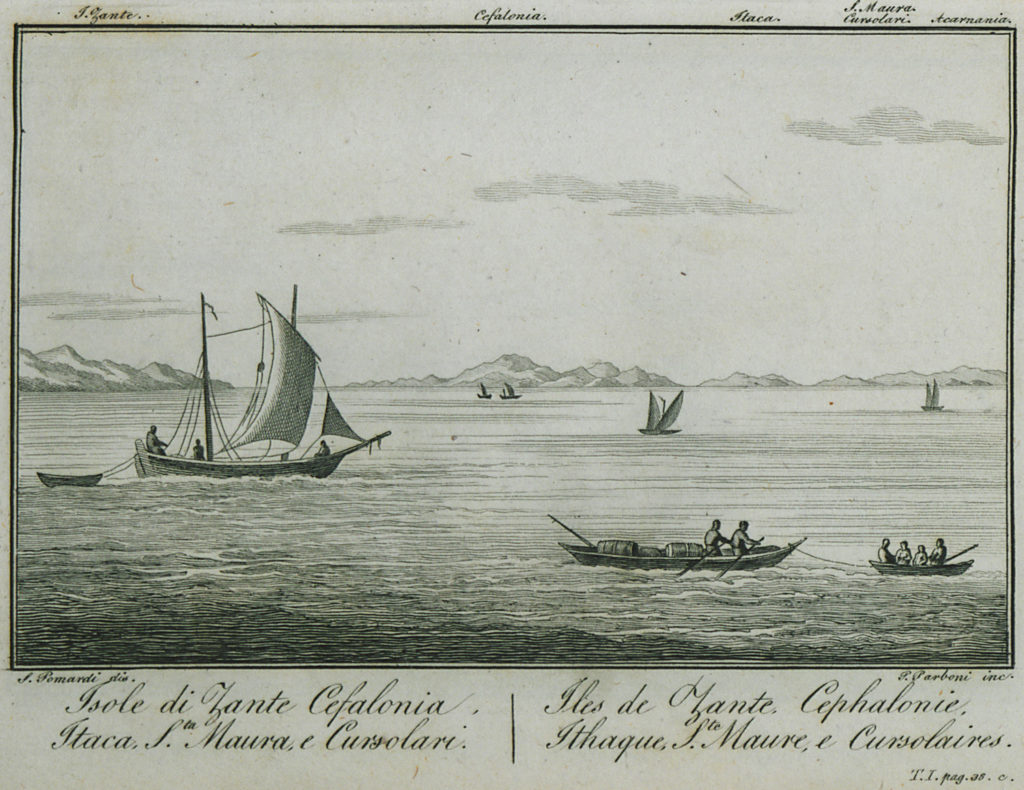 I. Zante.
Cefalonia.
Itaca.
S. Maura.
Cursolari.
Acarnania.
S. Pomardi dis.
P. Parboni inc.
Isole di Zante Cefalonia,
Itaca, S.ta Maura, e Cursolari.
Iles de Zante, Cephalonie,
Ithaque, S.te Maure, e Cursolaires.
T. I. pag. 38. c.